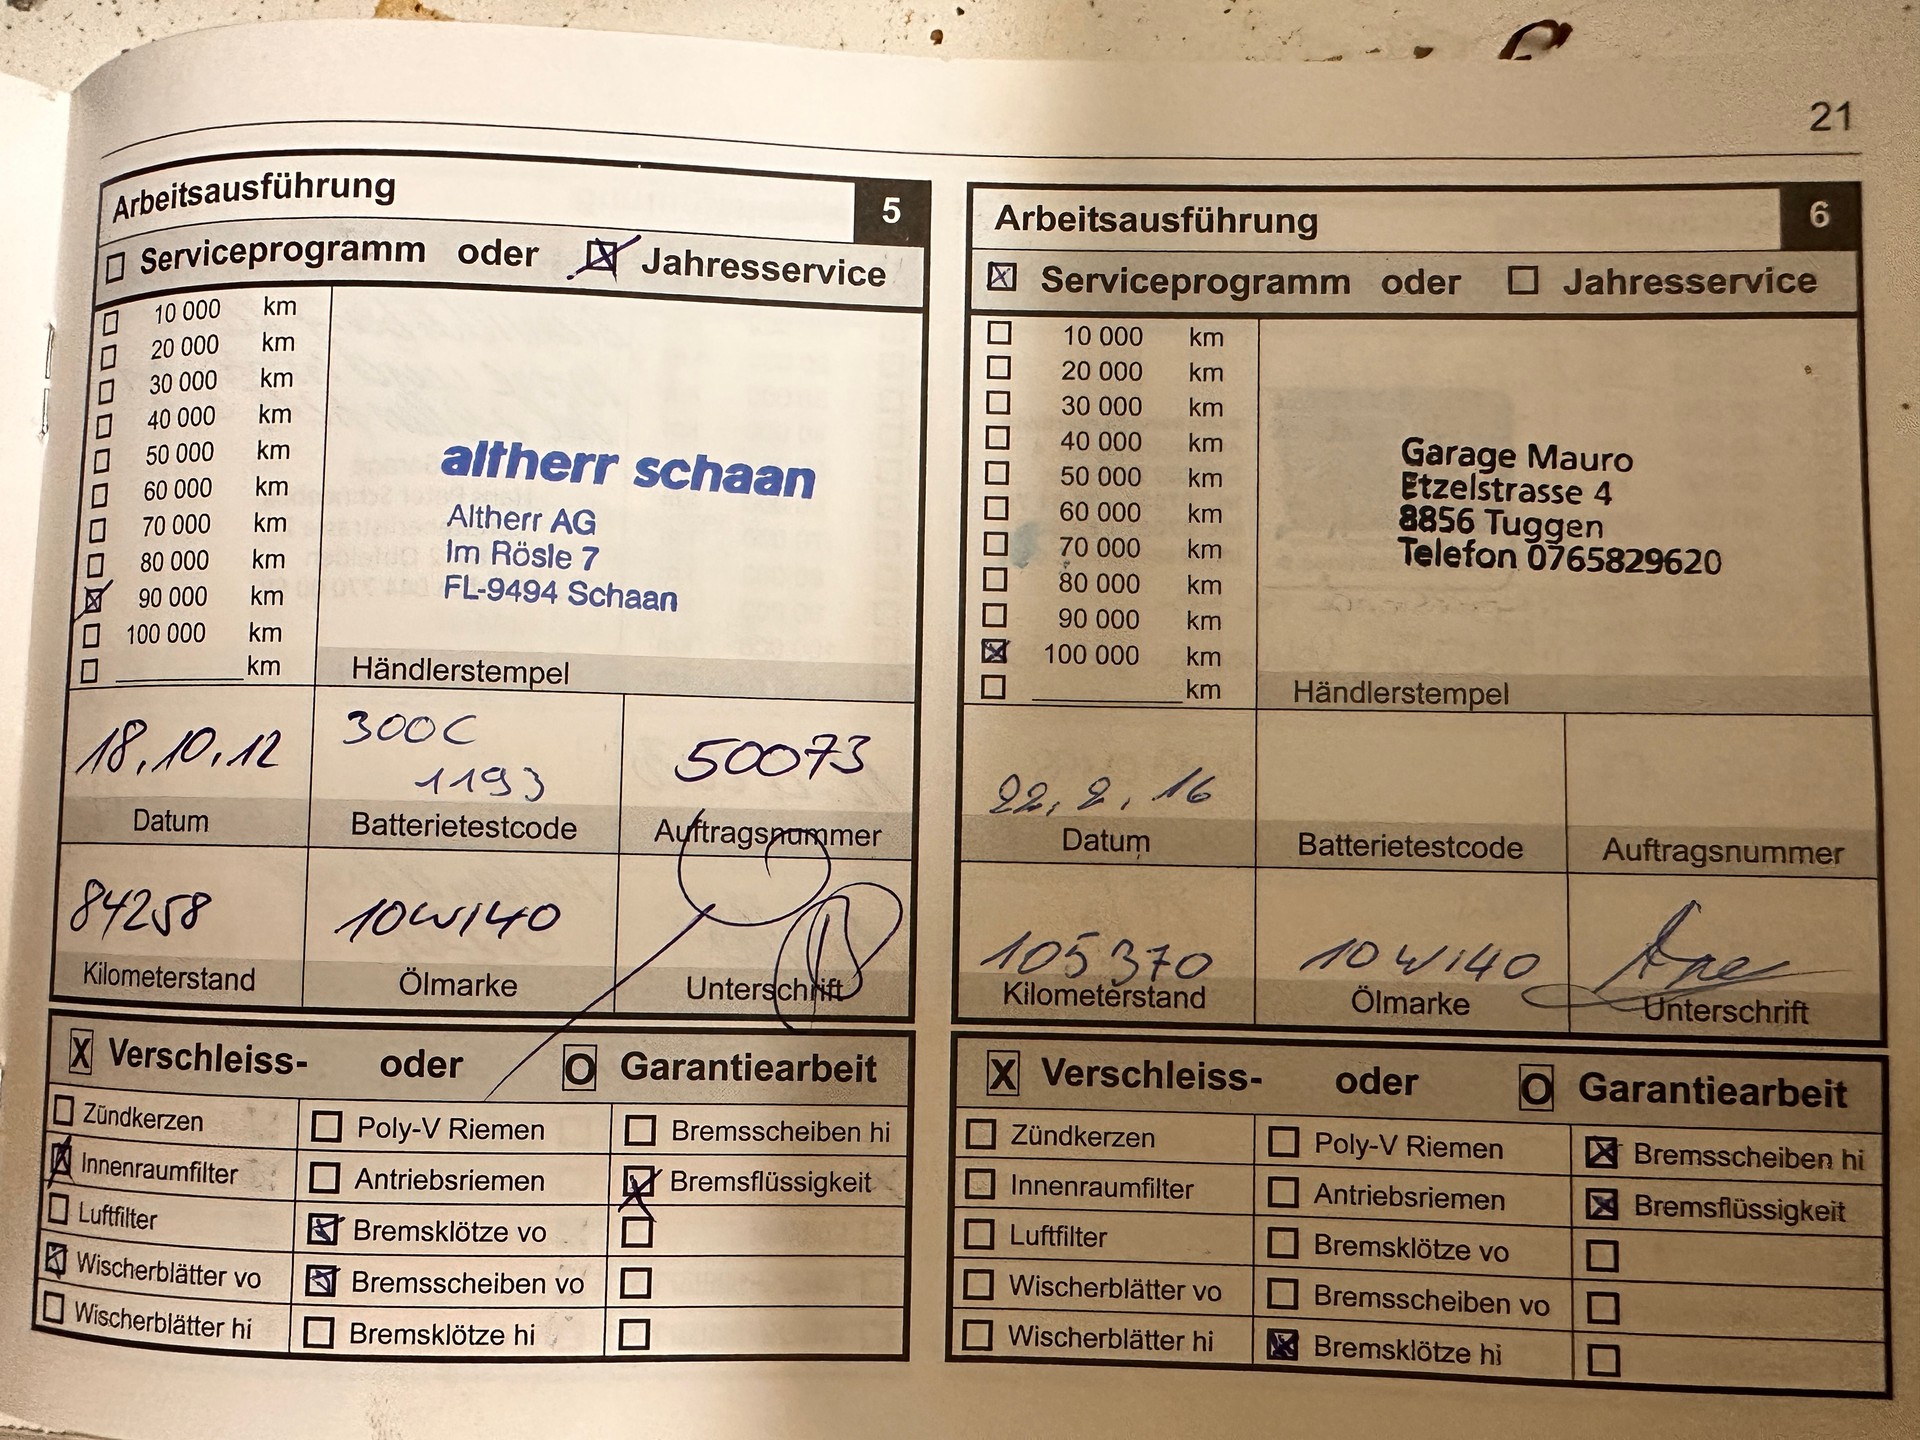 21
Arbeitsausführung 5
Serviceprogramm oder Jahresservice
10 000 km
20 000 km
30 000 km
40 000 km
50 000 km
60 000 km
70 000 km
80 000 km
90 000 km
100 000 km
km
altherr schaan
Altherr AG
Im Rösle 7
FL-9494 Schaan
Händlerstempel
18.10.12
300C
1193
50073
Datum Batterietestcode Auftragsnummer
84258 10W/40
Kilometerstand Ölmarke Unterschrift
X Verschleiss- oder O Garantiearbeit
Zündkerzen Poly-V Riemen Bremsscheiben hi
Innenraumfilter Antriebsriemen Bremsflüssigkeit
Luftfilter Bremsklötze vo
Wischerblätter vo Bremsscheiben vo
Wischerblätter hi Bremsklötze hi
Arbeitsausführung 6
Serviceprogramm oder Jahresservice
10 000 km
20 000 km
30 000 km
40 000 km
50 000 km
60 000 km
70 000 km
80 000 km
90 000 km
100 000 km
km
Garage Mauro
Etzelstrasse 4
8856 Tuggen
Telefon 0765829620
Händlerstempel
22.2.16
Datum Batterietestcode Auftragsnummer
105370 10W/40
Kilometerstand Ölmarke Unterschrift
X Verschleiss- oder O Garantiearbeit
Zündkerzen Poly-V Riemen Bremsscheiben hi
Innenraumfilter Antriebsriemen Bremsflüssigkeit
Luftfilter Bremsklötze vo
Wischerblätter vo Bremsscheiben vo
Wischerblätter hi Bremsklötze hi